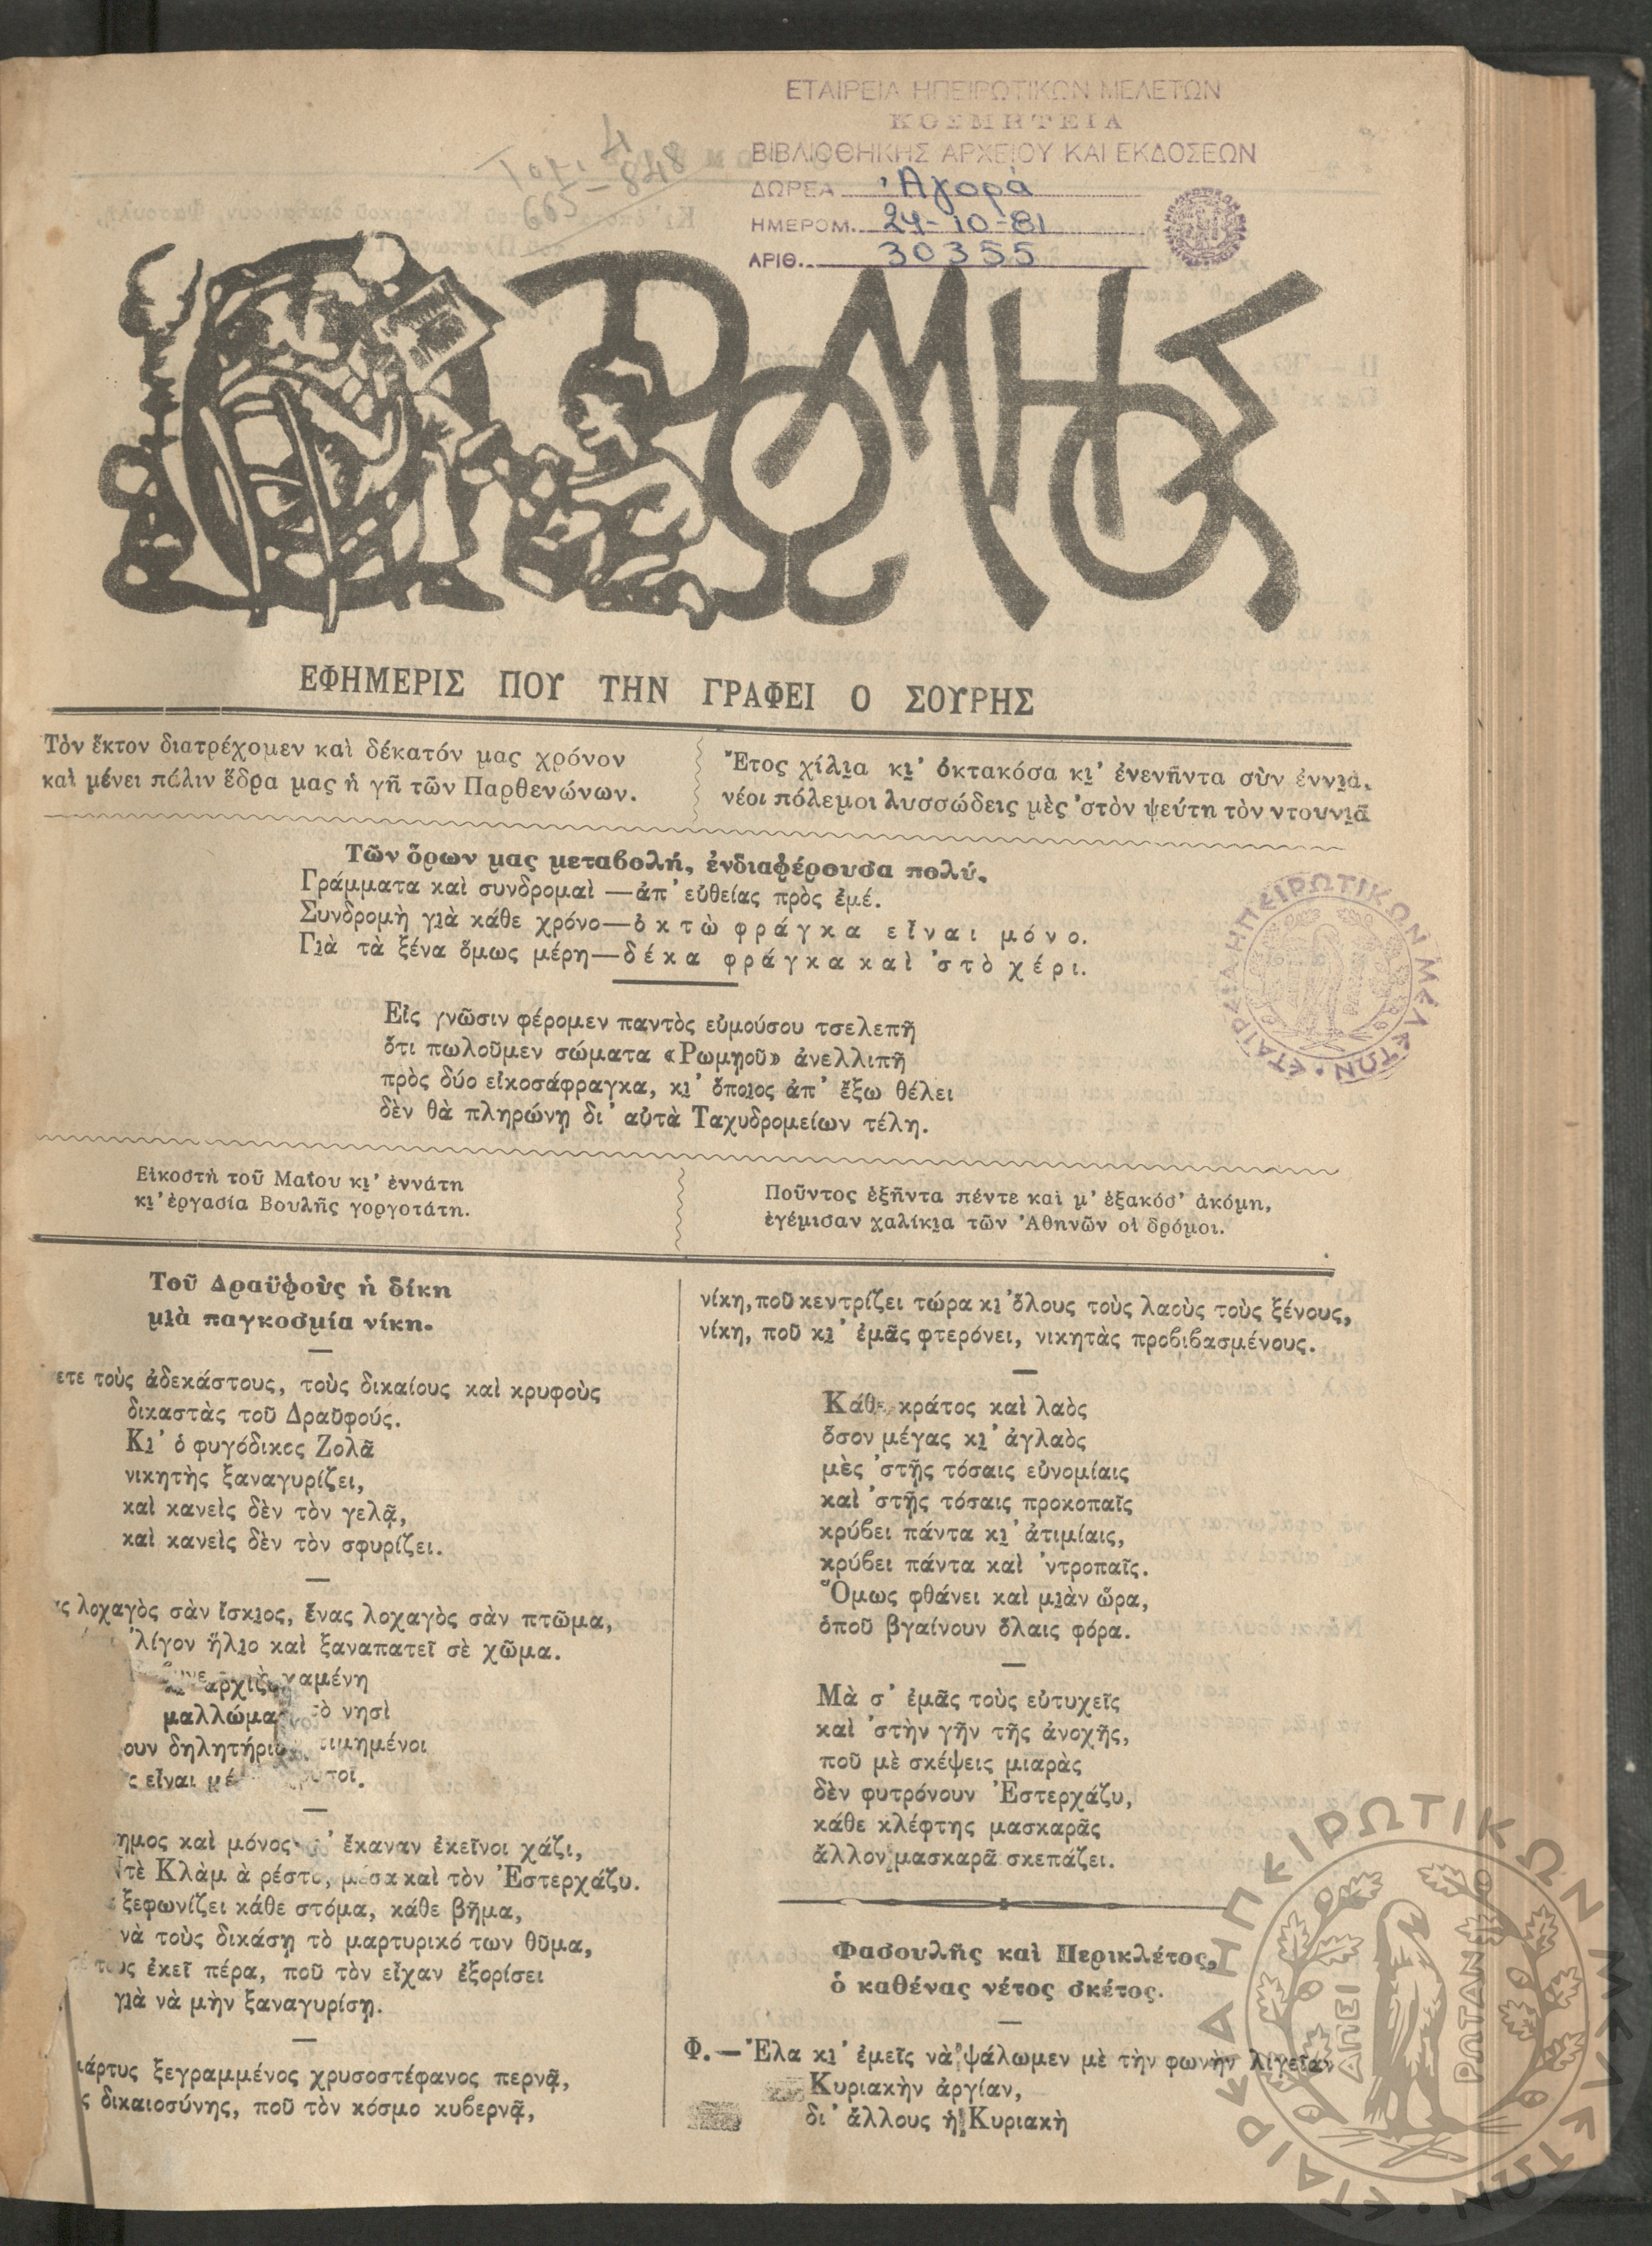 ΕΤΑΙΡΕΙΑ ΗΠΕΙΡΩΤΙΚΩΝ ΜΕΛΕΤΩΝ
ΚΟΣΜΗΤΕΙΑ
ΒΙΒΛΙΟΘΗΚΗΣ ΑΡΧΕΙΟΥ ΚΑΙ ΕΚΔΟΣΕΩΝ
ΔΩΡΕΑ Ἀγορά
ΗΜΕΡΟΜ. 24-10-81
ΑΡΙΘ. 30355
665-848
Ο ΡΩΜΗΟΣ
ΕΦΗΜΕΡΙΣ ΠΟΥ ΤΗΝ ΓΡΑΦΕΙ Ο ΣΟΥΡΗΣ
Τὸν ἕκτον διατρέχομεν καὶ δέκατόν μας χρόνον
καὶ μένει πάλιν ἕδρα μας ἡ γῆ τῶν Παρθενώνων.
Ἔτος χίλια κι' ὀκτακόσα κι' ἐνενῆντα σὺν ἐννιά,
νέοι πόλεμοι λυσσώδεις μὲς 'στὸν ψεύτη τὸν ντουνιᾶ
Τῶν ὅρων μας μεταβολή, ἐνδιαφέρουσα πολύ.
Γράμματα καὶ συνδρομαὶ —ἀπ' εὐθείας πρὸς ἐμέ.
Συνδρομὴ γιὰ κάθε χρόνο—ὀκτὼ φράγκα εἶναι μόνο.
Γιὰ τὰ ξένα ὅμως μέρη—δέκα φράγκα καὶ 'στὸ χέρι.
Εἰς γνῶσιν φέρομεν παντὸς εὐμούσου τσελεπῆ
ὅτι πωλοῦμεν σώματα «Ρωμηοῦ» ἀνελλιπῆ
πρὸς δύο εἰκοσάφραγκα, κι' ὅποιος ἀπ' ἔξω θέλει
δὲν θὰ πληρώνῃ δι' αὐτὰ Ταχυδρομείων τέλη.
Εἰκοστὴ τοῦ Μαΐου κι' ἐννάτη
κι' ἐργασία Βουλῆς γοργοτάτη.
Ποῦντος ἑξῆντα πέντε καὶ μ' ἑξακόσ' ἀκόμη,
ἐγέμισαν χαλίκια τῶν Ἀθηνῶν οἱ δρόμοι.
Τοῦ Δραϋφοὺς ἡ δίκη
μιὰ παγκοσμία νίκη.
ετε τοὺς ἀδεκάστους, τοὺς δικαίους καὶ κρυφοὺς
δικαστὰς τοῦ Δραϋφούς.
Κι' ὁ φυγόδικος Ζολᾶ
νικητὴς ξαναγυρίζει,
καὶ κανεὶς δὲν τὸν γελᾷ,
καὶ κανεὶς δὲν τὸν σφυρίζει.
ας λοχαγὸς σὰν ἴσκιος, ἕνας λοχαγὸς σὰν πτῶμα,
'λίγον ἥλιο καὶ ξαναπατεῖ σὲ χῶμα.
χαμένη
μαλλώμα τὸ νησὶ
ουν δηλητήριο τιμημένοι
ς εἶναι μέ
ημος καὶ μόνος ἔκαναν ἐκεῖνοι χάζι,
Ντὲ Κλὰμ ἀ ρέστο, μέσα καὶ τὸν Ἐστερχάζυ.
ξεφωνίζει κάθε στόμα, κάθε βῆμα,
νὰ τοὺς δικάσῃ τὸ μαρτυρικό των θῦμα,
τους ἐκεῖ πέρα, ποῦ τὸν εἶχαν ἐξορίσει
γιὰ νὰ μὴν ξαναγυρίσῃ.
μάρτυς ξεγραμμένος χρυσοστέφανος περνᾷ,
ς δικαιοσύνης, ποῦ τὸν κόσμο κυβερνᾷ,
νίκη, ποῦ κεντρίζει τώρα κι' ὅλους τοὺς λαοὺς τοὺς ξένους,
νίκη, ποῦ κι' ἐμᾶς φτερόνει, νικητὰς προβιβασμένους.
Κάθε κράτος καὶ λαὸς
ὅσον μέγας κι' ἀγλαὸς
μὲς 'στῆς τόσαις εὐνομίαις
καὶ 'στῆς τόσαις προκοπαῖς
κρύβει πάντα κι' ἀτιμίαις,
κρύβει πάντα καὶ 'ντροπαῖς.
Ὅμως φθάνει καὶ μιὰν ὥρα,
ὁποῦ βγαίνουν ὅλαις φόρα.
Μὰ σ' ἐμᾶς τοὺς εὐτυχεῖς
καὶ 'στὴν γῆν τῆς ἀνοχῆς,
ποῦ μὲ σκέψεις μιαρὰς
δὲν φυτρόνουν Ἐστερχάζυ,
κάθε κλέφτης μασκαρᾶς
ἄλλον μασκαρᾶ σκεπάζει.
Φασουλῆς καὶ Περικλέτος,
ὁ καθένας νέτος σκέτος.
Φ.— Ἔλα κι' ἐμεῖς νὰ ψάλωμεν μὲ τὴν φωνὴν λιγεῖαν
Κυριακὴν ἀργίαν,
δι' ἄλλους ἡ Κυριακὴ
ΕΤΑΙΡΕΙΑ ΗΠΕΙΡΩΤΙΚΩΝ ΜΕΛΕΤΩΝ
ΕΤΑΙΡΕΙΑ ΗΠΕΙΡΩΤΙΚΩΝ ΜΕΛΕΤΩΝ
ΑΠΕΙ ΡΩΤΑΝ